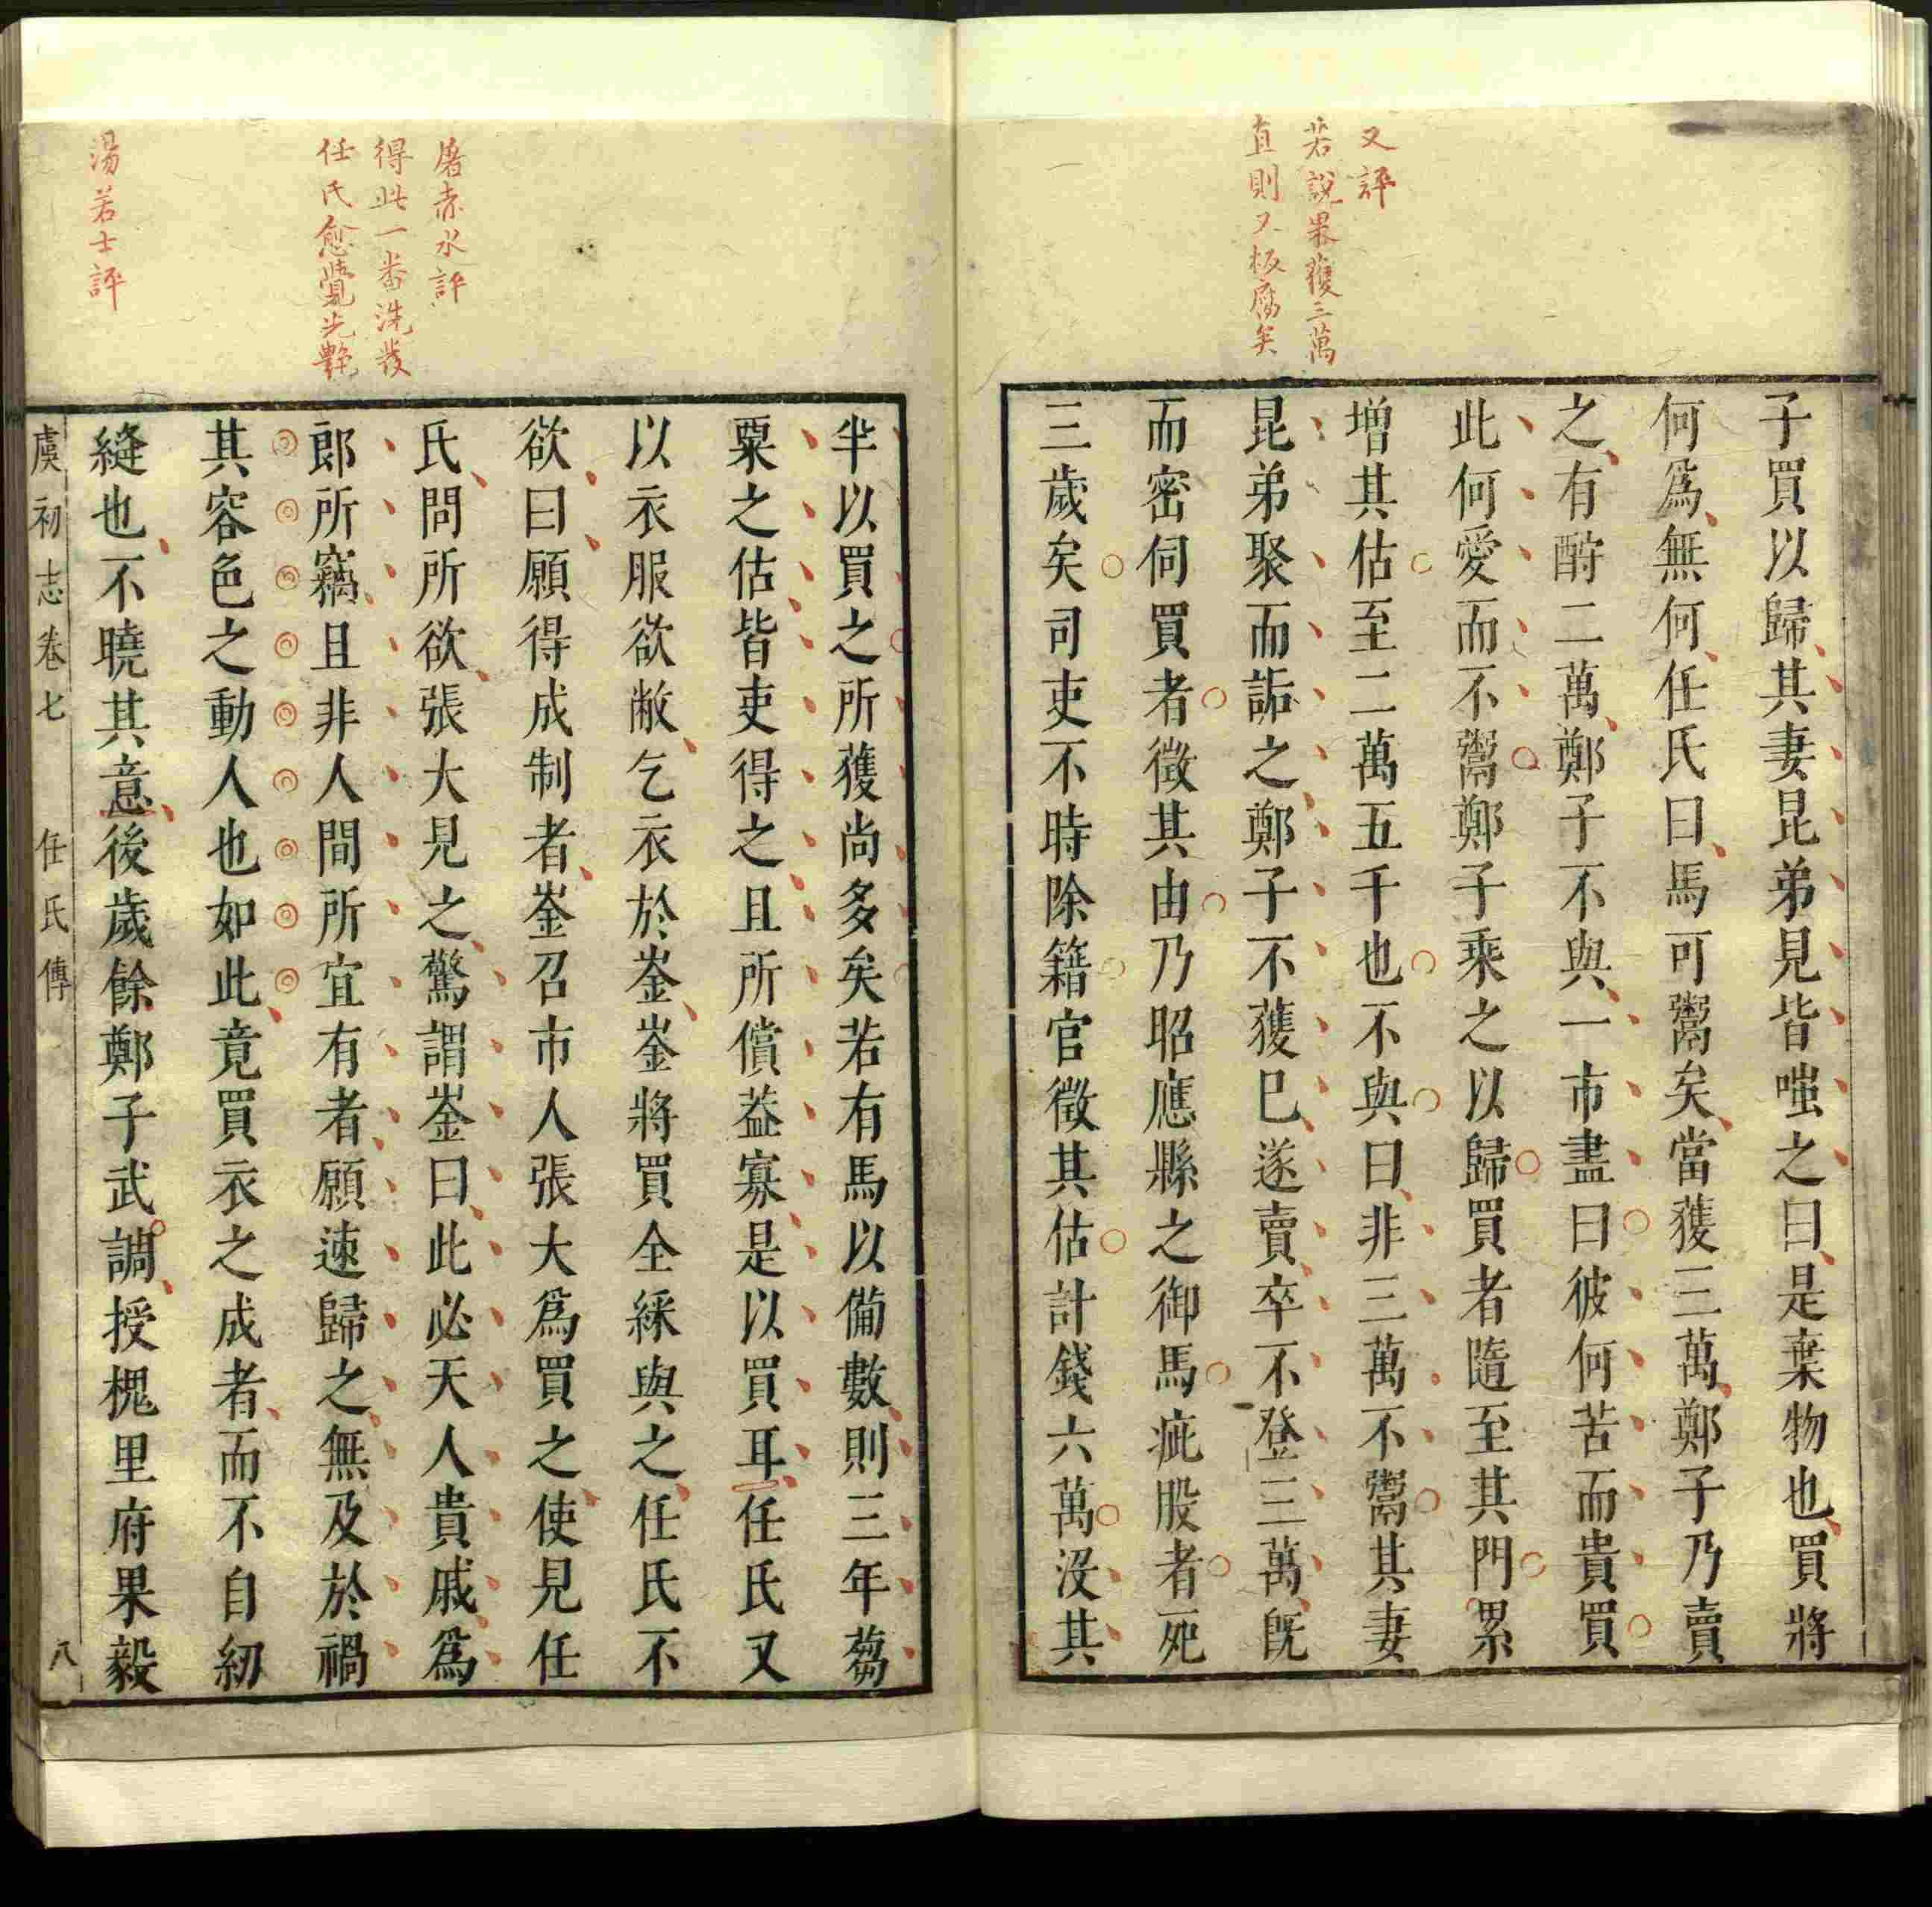 又評
若說果獲三萬
直則又板腐矣
子買以歸其妻昆弟見皆嗤之曰是棄物也買將
何爲無何任氏曰馬可鬻矣當獲三萬鄭子乃賣
之有酧二萬鄭子不與一市盡曰彼何苦而貴買
此何愛而不鬻鄭子乘之以歸買者隨至其門累
增其估至二萬五千也不與曰非三萬不鬻其妻
昆弟聚而詬之鄭子不獲巳遂賣卒不登三萬旣
而密伺買者徵其由乃昭應縣之御馬疵股者死
三歲矣司吏不時除籍官徵其估計錢六萬沒其
屠赤水評
得此一番洗發
任氏愈覺光艷
湯若士評
半以買之所獲尚多矣若有馬以備數則三年蒭
粟之估皆吏得之且所償葢寡是以買耳任氏又
以衣服欲敝乞衣於崟崟將買全綵與之任氏不
欲曰願得成制者崟召市人張大爲買之使見任
氏問所欲張大見之驚謂崟曰此必天人貴戚爲
郎所竊且非人間所宜有者願速歸之無及於禍
其容色之動人也如此竟買衣之成者而不自紉
縫也不曉其意後歲餘鄭子武調授槐里府果毅
虞初志卷七 任氏傳 八